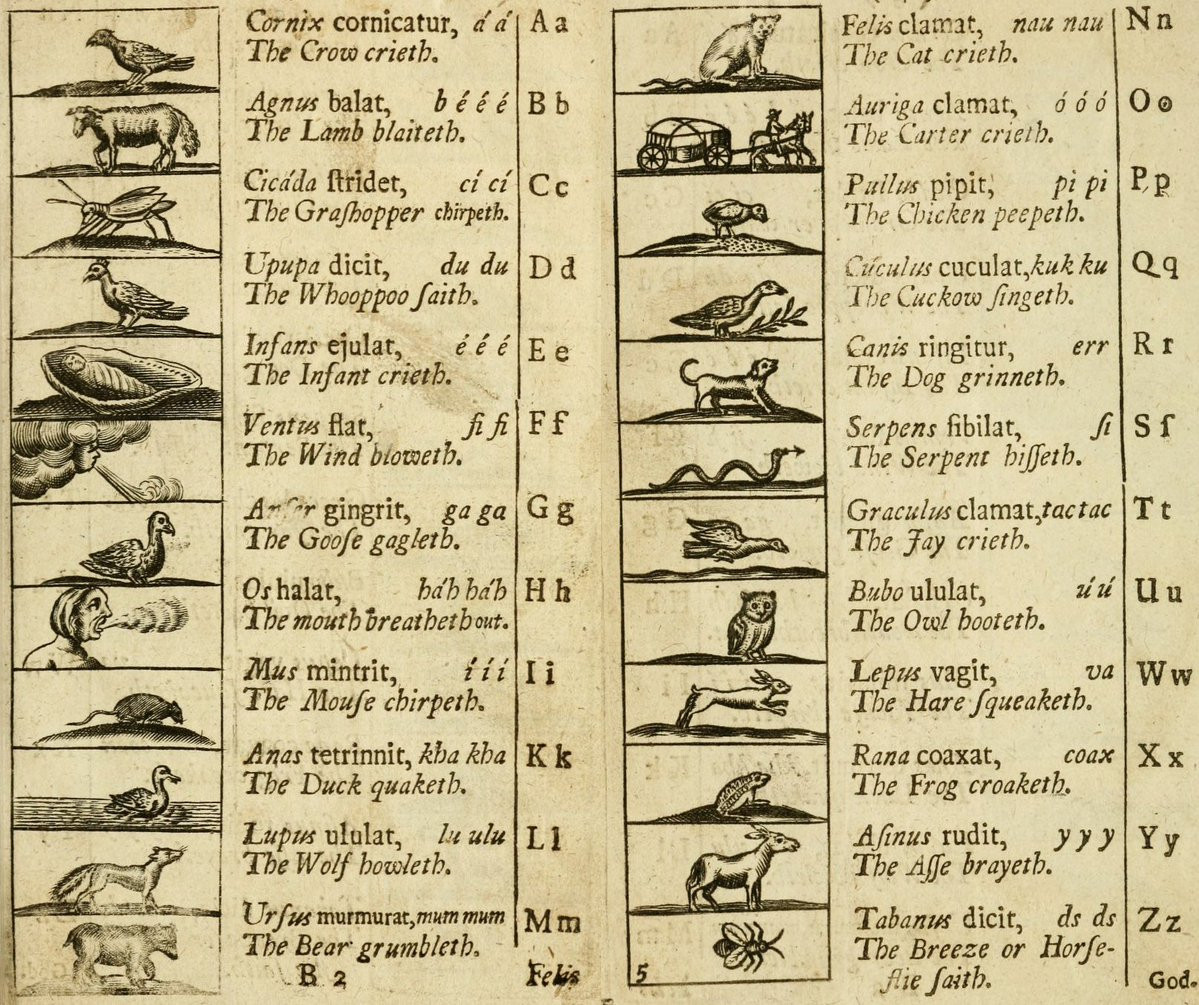 Cornix cornicatur, á á A a
The Crow crieth.
Agnus balat, b é é é B b
The Lamb blaiteth.
Cicáda ſtridet, cí cí C c
The Graſhopper chirpeth.
Upupa dicit, du du D d
The Whooppoo ſaith.
Infans ejulat, é é é E e
The Infant crieth.
Ventus flat, fi fi F f
The Wind bloweth.
gingrit, ga ga G g
The Gooſe gagleth.
Os halat, há'h há'h H h
The mouth breatheth out.
Mus mintrit, í í í I i
The Mouſe chirpeth.
Anas tetrinnit, kha kha K k
The Duck quaketh.
Lupus ululat, lu ulu L l
The Wolf howleth.
Urſus murmurat, mum mum M m
The Bear grumbleth.
B 2 Felis
Felis clamat, nau nau N n
The Cat crieth.
Auriga clamat, ó ó ó O o
The Carter crieth.
Pullus pipit, pi pi P p
The Chicken peepeth.
Cúculus cuculat, kuk ku Q q
The Cuckow ſingeth.
Canis ringitur, err R r
The Dog grinneth.
Serpens ſibilat, ſi S ſ
The Serpent hiſſeth.
Graculus clamat, tac tac T t
The Jay crieth.
Bubo ululat, ú ú U u
The Owl hooteth.
Lepus vagit, va W w
The Hare ſqueaketh.
Rana coaxat, coax X x
The Frog croaketh.
Aſinus rudit, y y y Y y
The Aſſe brayeth.
Tabanus dicit, ds ds Z z
The Breeze or Horſe-
flie ſaith.
5 God.